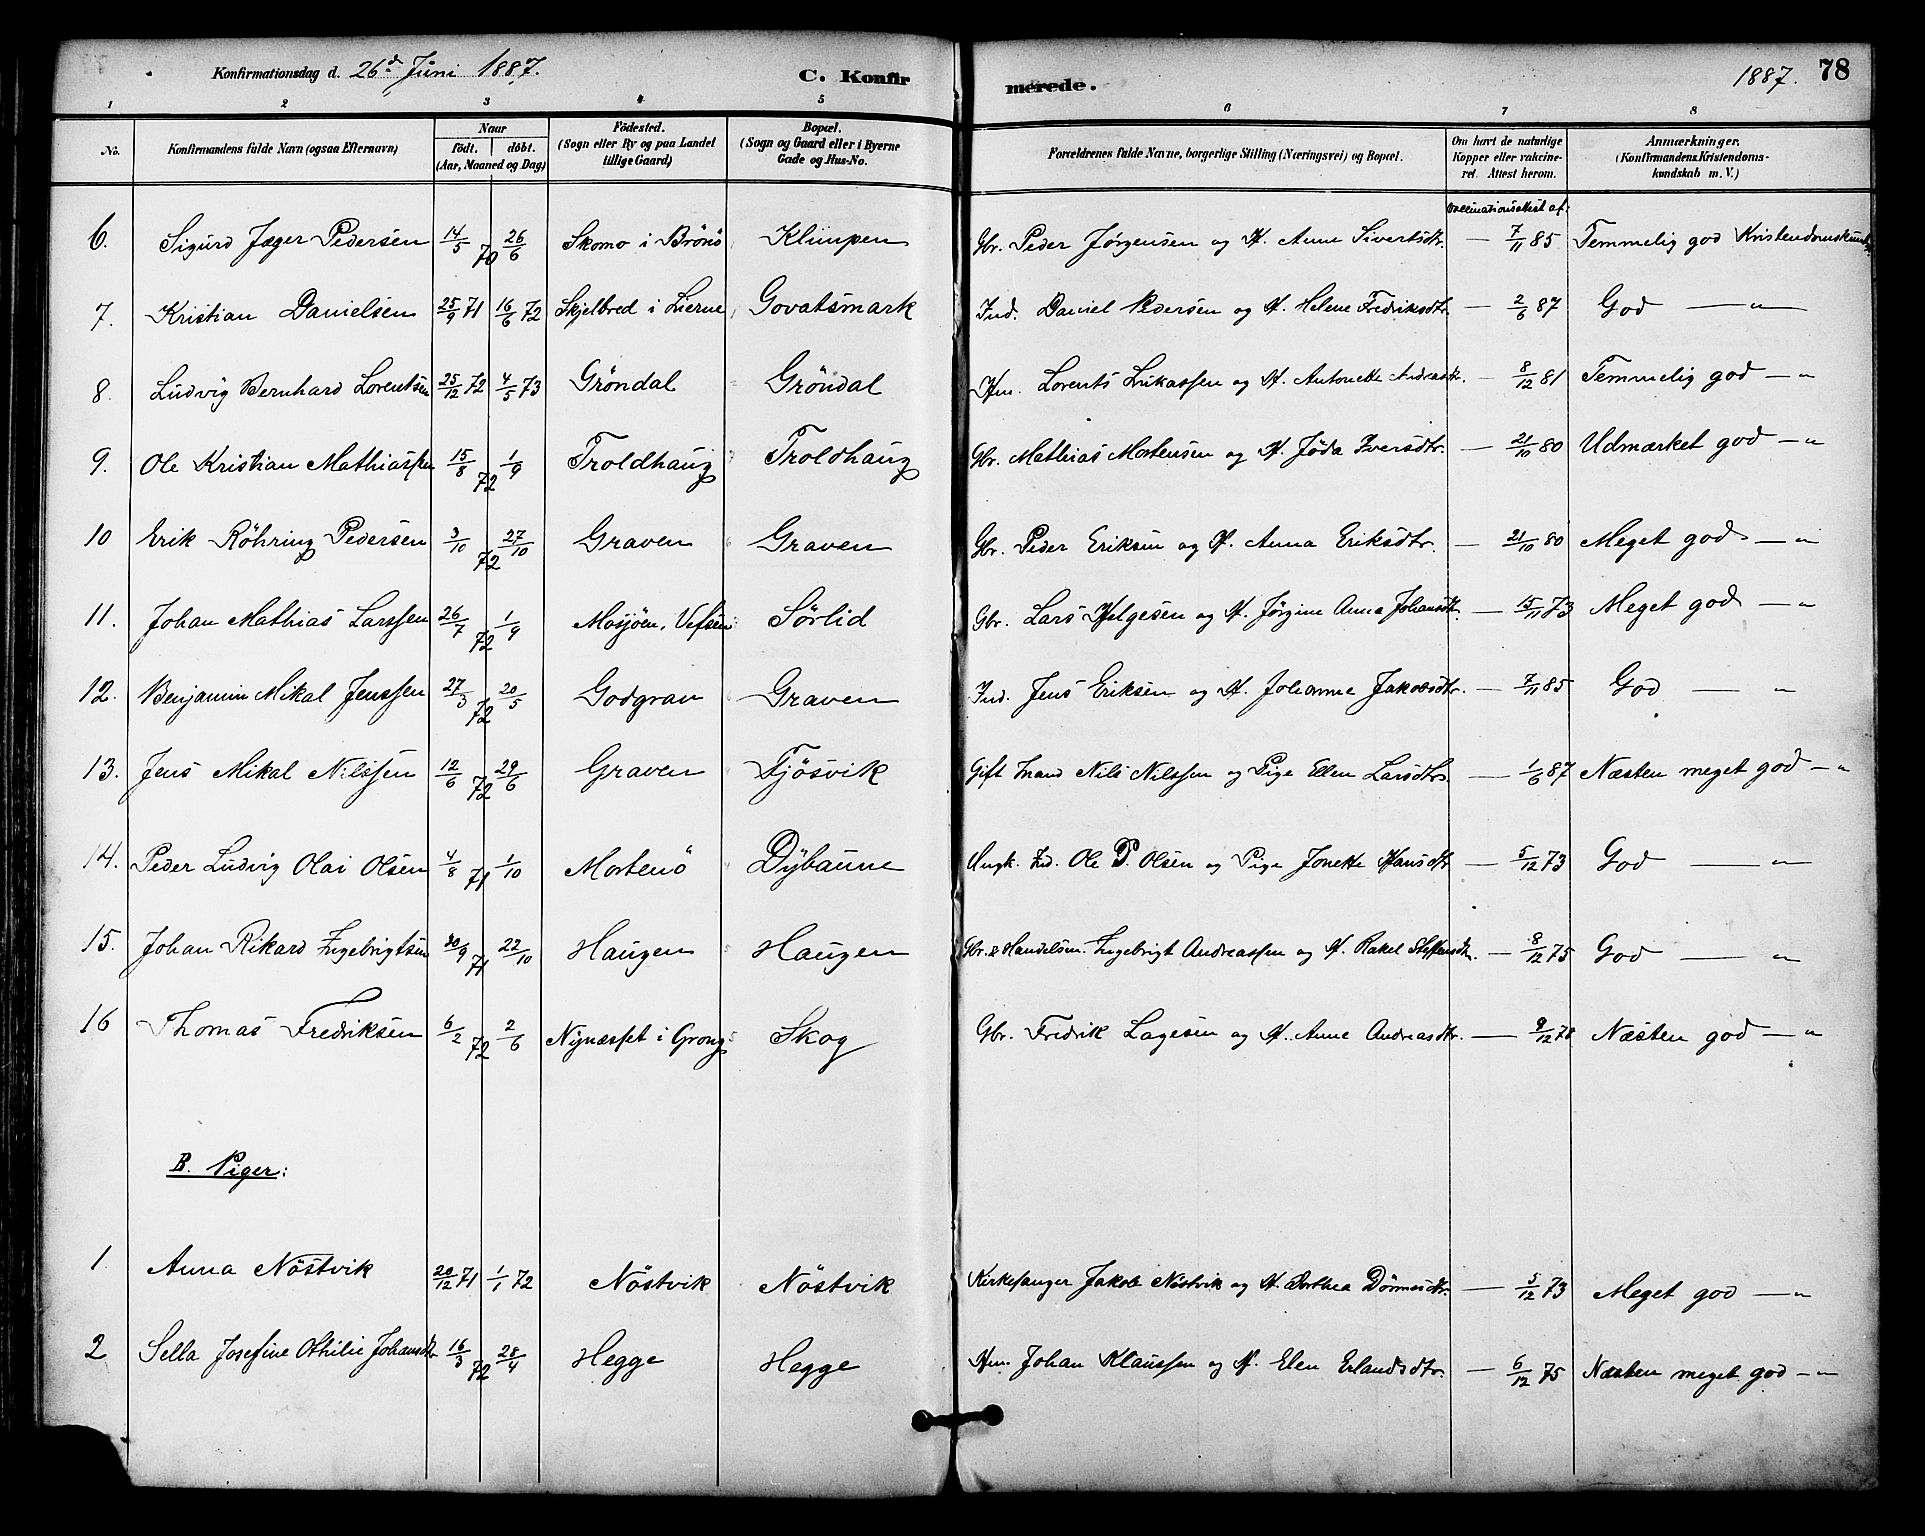 Konfirmationsdag d. 26d Juni 1887. C. Konfirmerede. 1887. 78
1 2 3 4 5 6 7 8
No. Konfirmandens fulde Navn (ogsaa Efternavn) Naar födt. döbt. (Aar, Maaned og Dag) Födested. (Sogn eller By og paa Landet tillige Gaard) Bopæl. (Sogn og Gaard eller i Byerne Gade og Hus-No. Forældrenes fulde Navne, borgerlige Stilling (Næringsvei) og Bopæl. Om havt de naturlige Kopper eller vaccineret. Attest herom. Anmærkninger. (Konfirmandens Kristendomskundskab m. V.)
Vaccinationsattest af:
6. Sigurd Jæger Pedersen 14/5 70 26/6 Skomo i Brönö Klimpen Gbr. Peder Jörgensen og H. Anne Sivertsdtr. — 7/11 85 Temmelig god Kristendomskundsk.
7. Kristian Danielsen 25/9 71 16/6 72 Skjelbred i Lierne Govatsmark Ind. Daniel Pedersen og H. Helene Fredriksdtr. — 2/6 87 God — "
8. Ludvig Bernhard Lorentsen 25/12 72 4/5 73 Gröndal Gröndal Hm. Lorents Lukassen og H. Antonette Andreasdtr. — 8/12 81 Temmelig god — "
9. Ole Kristian Mathiassen 15/8 72 1/9 Troldhaug Troldhaug Gbr. Mathias Mortensen og H. Jöda Iversdtr. — 21/10 80 Udmærket god — "
10 Erik Röhring Pedersen 3/10 72 27/10 Graven Graven Gbr. Peder Eriksen og H. Anna Eriksdtr. — 21/10 80 Meget god — "
11. Johan Mathias Larssen 26/7 72 1/9 Mosjöen, Vefsen Sörlid Gbr. Lars Helgesen og H. Jörgine Anna Johansdtr. — 15/11 73 Meget god — "
12. Benjamin Mikal Jenssen 27/3 72 20/5 Godgrav Graven Ind. Jens Eriksen og H. Johanne Jakobsdtr. — 7/11 85 God — "
13. Jens Mikal Nilssen 12/6 72 29/6 Graven Tjösvik Gift Mand Nils Nilssen og Pige Ellen Larsdtr. — 1/6 87 Næsten meget god — "
14. Peder Ludvig Olai Olsen 4/8 71 1/10 Mortenö Dybaune Ungk. Ind. Ole P. Olsen og Pige Jonette Hansdtr. — 5/12 73 God — "
15. Johan Rikard Ingebrigtsen 30/9 71 22/10 Haugen Haugen Gbr. & Handelsm. Ingebrigt Andreassen og H. Rakel Steffensdtr. — 8/12 75 God — "
16 Thomas Fredriksen 6/2 72 2/6 Nynæsset i Grong Skog Gbr. Fredrik Lagesen og H. Anne Andreasdtr. — 9/12 78 Næsten god — "
B. Piger:
1. Anna Nöstvik 20/12 71 1/1 72 Nöstvik Nöstvik Kirkesanger Jakob Nöstvik og H. Dorthea Dönnesdtr. — 5/12 73 Meget god — "
2 Sella Josefine Othilie Johansdtr. 16/3 72 28/4 Hegge Hegge Hm. Johan Klaussen og H. Elen Erlandsdtr. — 6/12 75 Næsten meget god — "